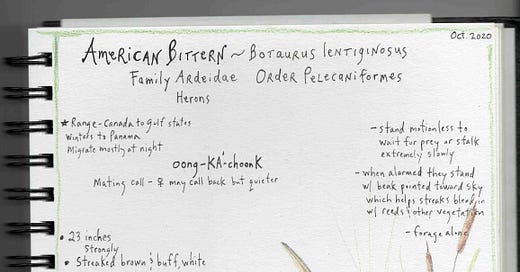 Oct. 2020
AMERICAN BITTERN ~ BOTAURUS LENTIGINOSUS
FAMILY ARDEIDAE ORDER PELECANIFORMES
HERONS
★ Range - Canada to Gulf states
Winters to Panama
Migrate mostly at night
oong-KÁ-choonk
Mating call - ♀ may call back but quieter
- stand motionless to
wait for prey or stalk
extremely slowly
- when alarmed they stand
w/ beak pointed toward sky
which helps streaks blend in
w/ reeds & other vegetation
- forage alone
• 23 inches
Strongly
• Streaked brown & buff, white